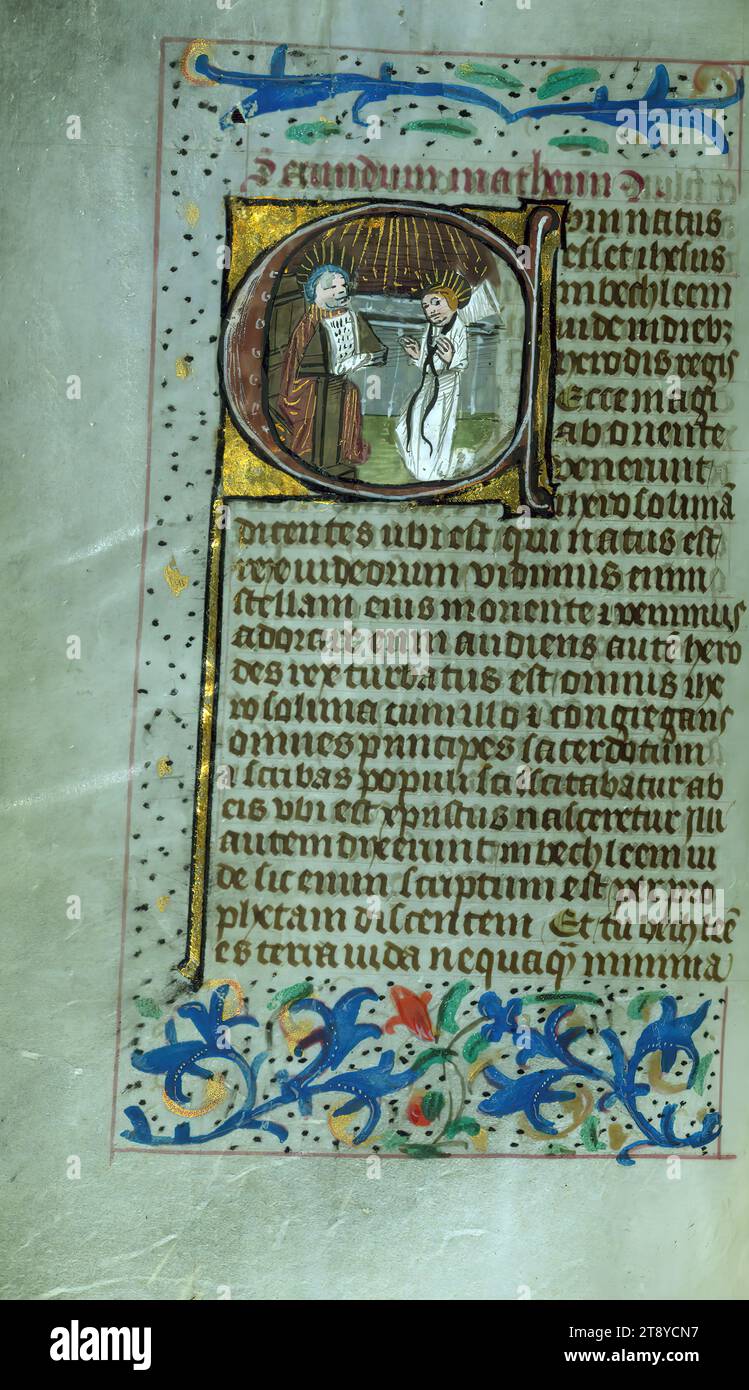 Secundum matheum
um natus
esset ihesus
in bechleem
iude in diebz
herodis regis
Ecce magi
ab oriente
venerunt
iherosolimā
dicentes ubi est qui natus est
rex iudeorum vidimus enim
stellam eius in oriente et venimus
adorare eum audiens aute hero
des rex turbatus est omnis ihe
rosolima cum illo et congregans
omnes principes sacerdotum
et scribas populi sciscitabatur ab
eis ubi est xpristus nasceretur Illi
autem dixerunt in bechleem iu
de sic enim scriptum est per pro
phetam discentem Et tu bethleē
es terra iuda nequaq̄ minima
alamy
Image ID: 2T8YCN7
www.alamy.com